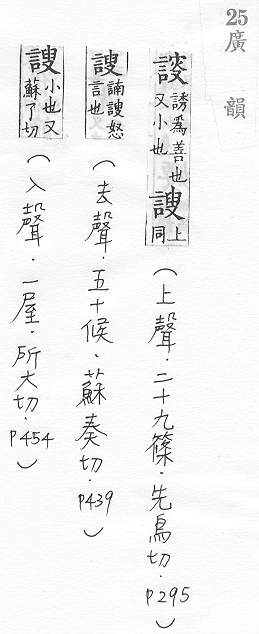 25廣韻
誘爲善也又小也 謏 上同 (上聲．二十九篠．先鳥切．P295)
謏 諵謏怒言也 (去聲．五十候．蘇奏切．P439)
謏 小也又蘇了切 (入聲．一屋．所六切．P454)